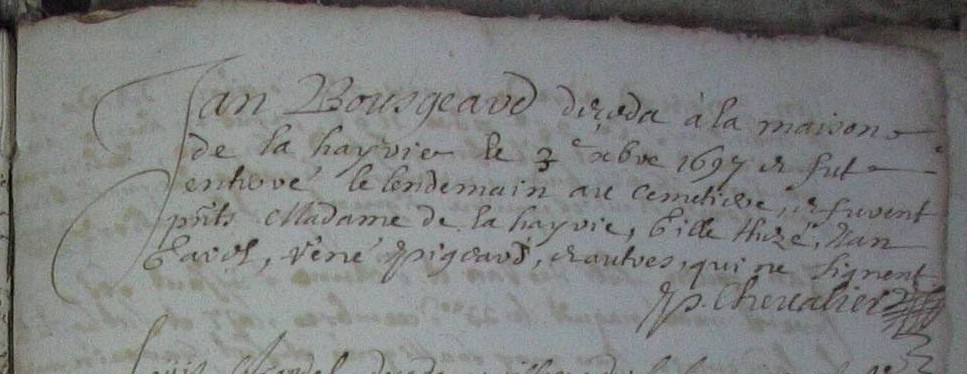 Jan Bourgeard déceda à la maison
de la hayrie le 3e xbre 1697 et fut
enterré le lendemain au cemetiere, et furent
pnts Madame de la hayrie, Gille Huzé, Jan
Garel, René Pigeard, et autres, qui ne signent
P. Chevalier